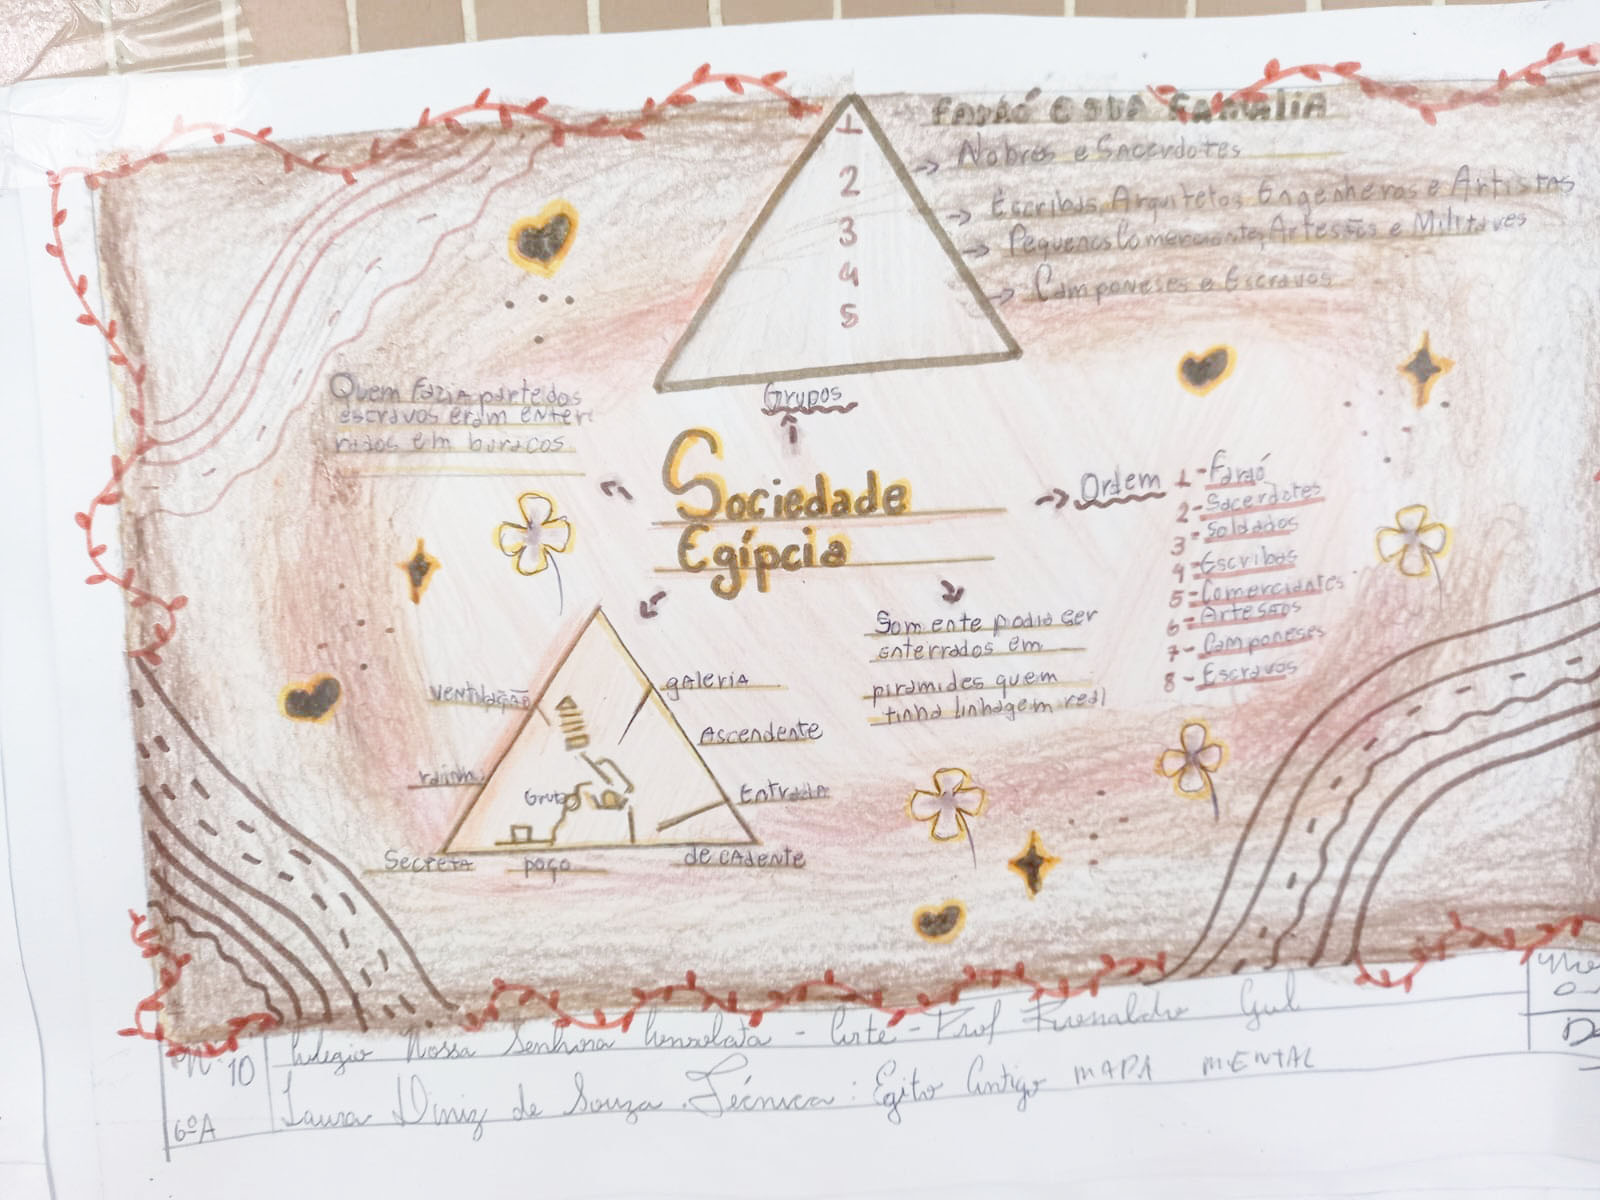 Faraó e sua Família
1
→ Nobres e Sacerdotes
2
→ Escribas, Arquitetos Engenheros e Artistas
3
→ Pequenos Comerciante, Artesãos e Militares
4
→ Camponeses e Escravos
5
Grupos
Quem fazia parte dos
escravos eram enter
rados em buracos
Sociedade
Egípcia
→ Ordem
1 - Faraó
2 - Sacerdotes
3 - Soldados
4 - Escribas
5 - Comerciantes
6 - Artesãos
7 - Camponeses
8 - Escravos
Somente podia ser
enterrados em
piramides quem
tinha linhagem real
ventilação
galeria
Ascendente
rainha
Gruta
Entrada
Secreta
poço
decadente
Nº 10
Colegio Nossa Senhora - Arte - Prof Ronaldo
6ºA
Laura Diniz de Souza. Técnica: Egito Antigo MAPA MENTAL